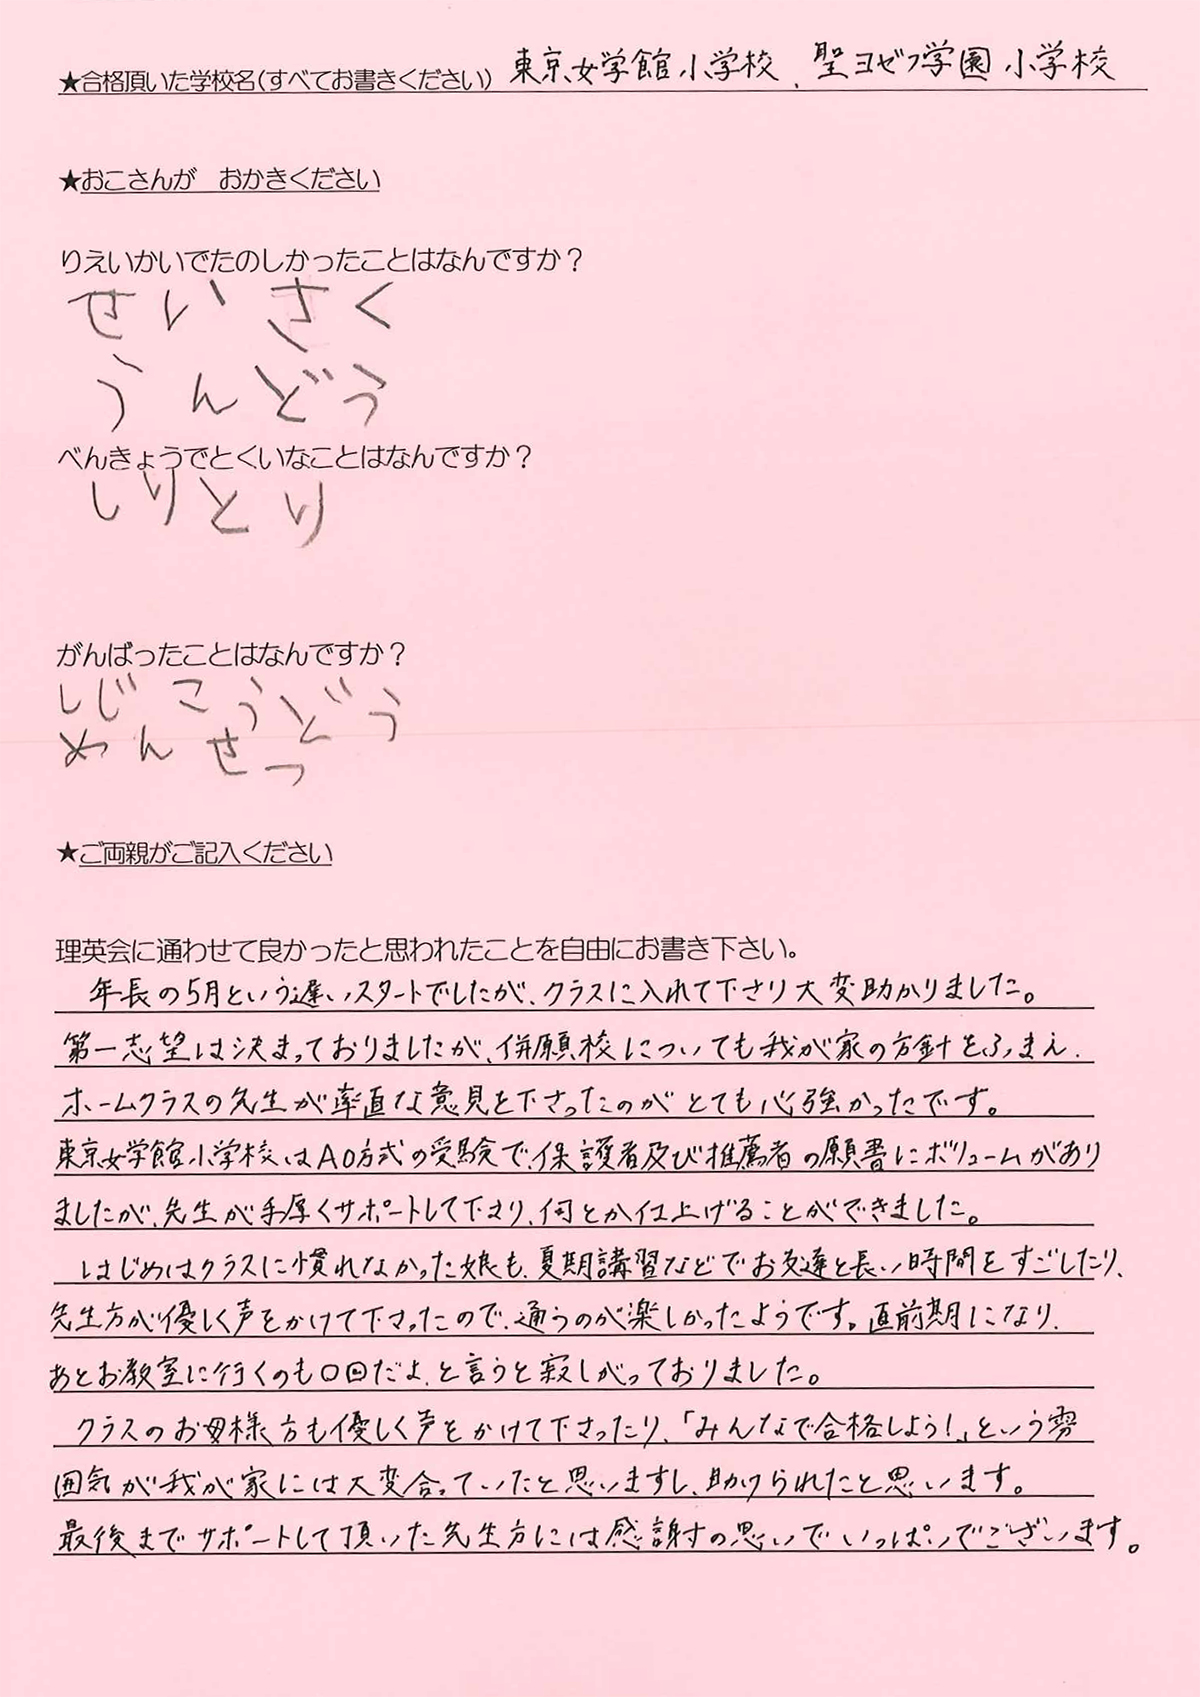 ★合格頂いた学校名(すべてお書きください) 東京女学館小学校、聖ヨゼフ学園小学校
★おこさんが　おかきください
りえいかいでたのしかったことはなんですか？
せいさく
うんどう
べんきょうでとくいなことはなんですか？
しりとり
がんばったことはなんですか？
しじこうどう
めんせつ
★ご両親がご記入ください
理英会に通わせて良かったと思われたことを自由にお書き下さい。
年長の5月という遅いスタートでしたが、クラスに入れて下さり大変助かりました。
第一志望は決まっておりましたが、併願校についても我が家の方針をふまえ、
ホームクラスの先生が率直な意見を下さったのがとても心強かったです。
東京女学館小学校はAO方式の受験で、保護者及び推薦者の願書にボリュームがあり
ましたが、先生が手厚くサポートして下さり、何とか仕上げることができました。
はじめはクラスに慣れなかった娘も、夏期講習などでお友達と長い時間をすごしたり、
先生方が優しく声をかけて下さったので、通うのが楽しかったようです。直前期になり、
あとお教室に行くのも〇回だよ、と言うと寂しがっておりました。
クラスのお母様方も優しく声をかけて下さったり、「みんなで合格しよう!」という雰
囲気が我が家には大変合っていたと思いますし、助けられたと思います。
最後までサポートして頂いた先生方には感謝の思いでいっぱいでございます。